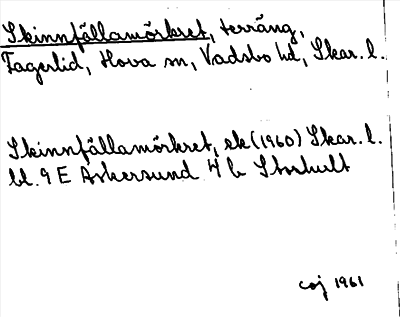 Skinnfällamörkret, terräng,
Fagerlid, Hova sn, Vadsbo hd, Skar. l.
Skinnfällamörkret, ek (1960) Skar. l.
bl. 9 E Askersund 4 b Storhult
caj 1961